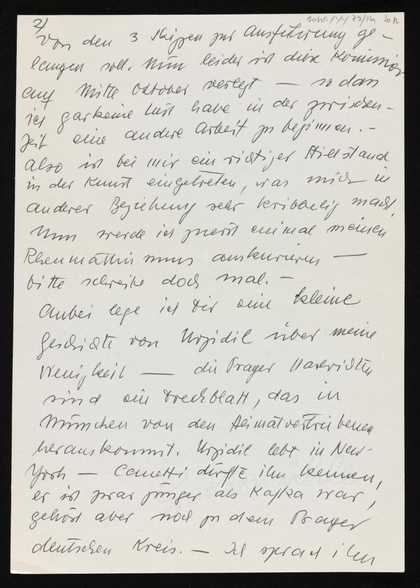 2)
Von den 3 Skizzen zur Ausführung ge-
langen soll. Nun leider ist diese Kommission
auf Mitte Oktober verlegt — so dass
ich gar keine Lust habe in der zwischen-
zeit eine andere Arbeit zu beginnen. -
Also ist bei mir ein richtiger Stillstand
in der Kunst eingetreten, was mich in
anderer Beziehung sehr kribbelig macht.
Nun werde ich zuerst einmal meinen
Rheumathismus auskurieren —
bitte schreibe doch mal. -
Anbei lege ich Dir eine kleine
Geschichte von Urzidil über meine
Wenigkeit — die Prager Nachrichten
sind ein Drecksblatt, das in
München von den Heimatvertriebenen
herauskommt. Urzidil lebt in New-
York — Canetti dürfte ihn kennen,
er ist zwar jünger als Kafka war,
gehört aber noch zu dem Prager
deutschen Kreis. - Ich sprach ihn